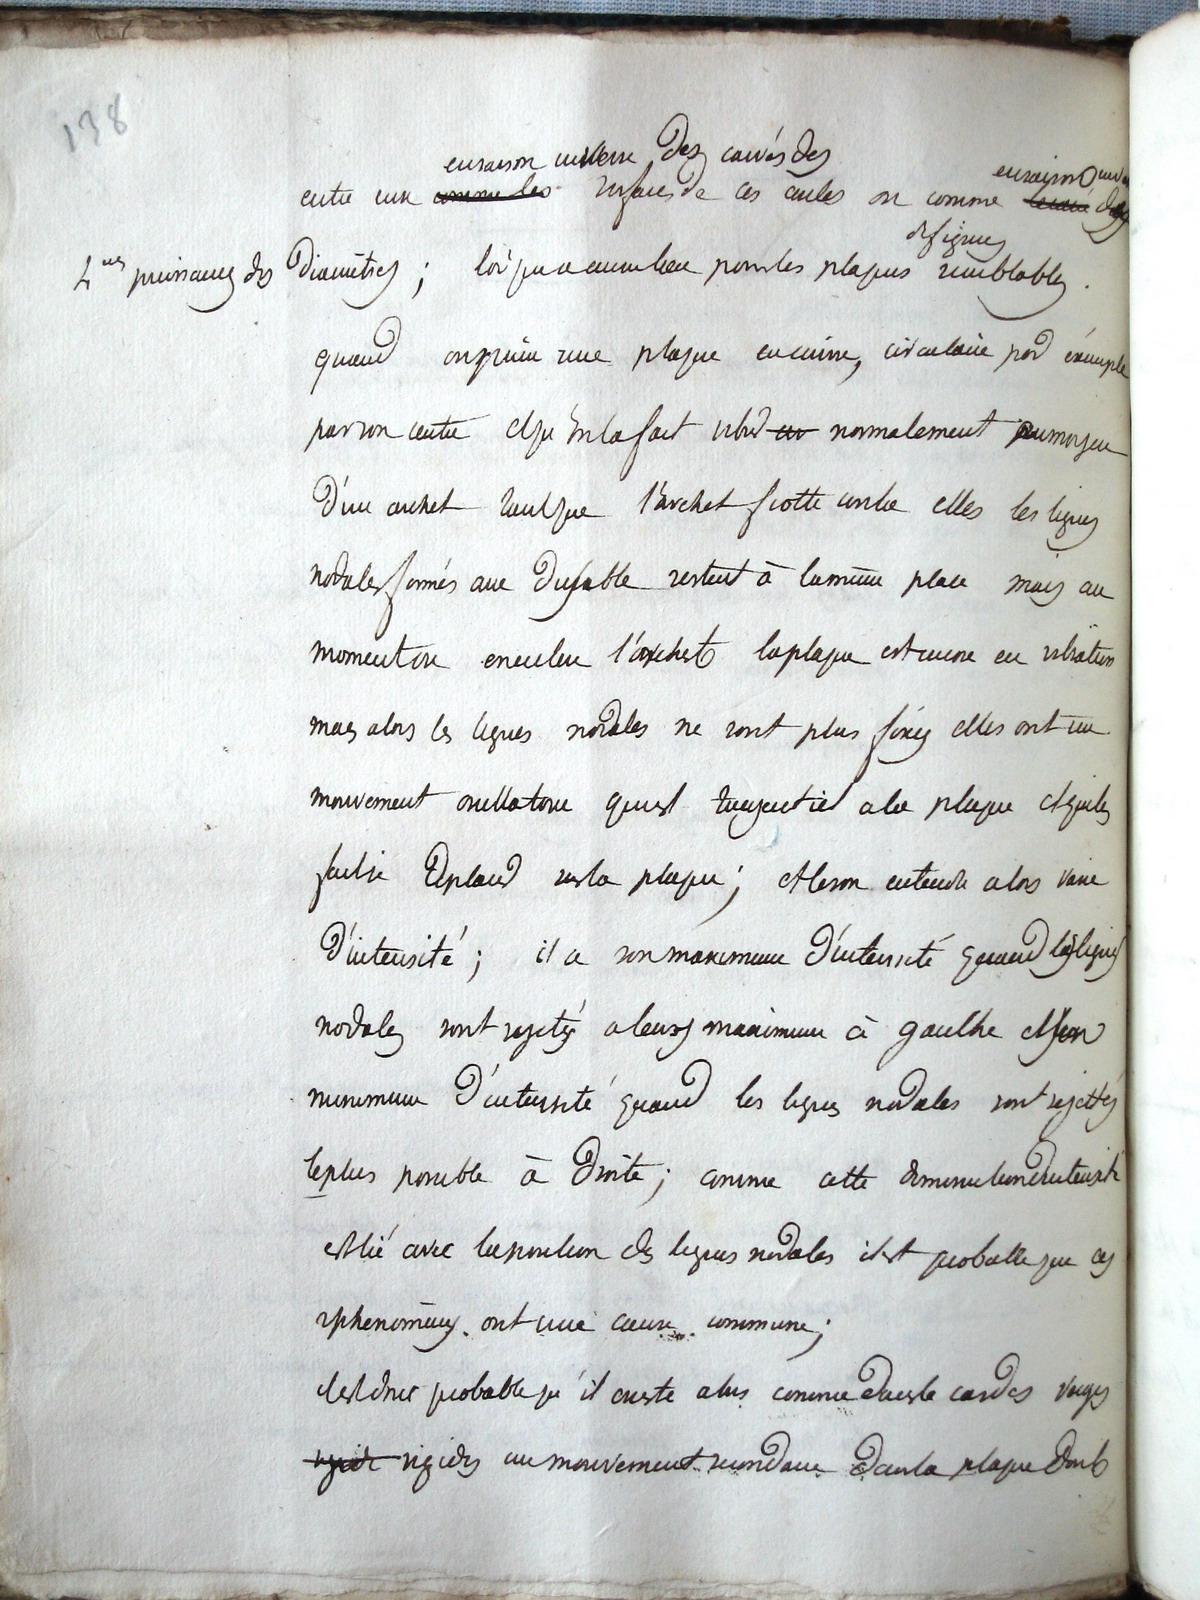 138
en raison inverse des carrés des
en raison inverse
entre eux comme les surfaces de ces cercles ou comme le carré des
de figures
4mes puissances des Diamètres ; loi qui a eu lieu pour les plaques semblables.
quand on prime une plaque en cuivre, circulaire par éxemple
par son centre et qu'on la fait vibrer en normalement au moyen
D'un archet tant que l'archet frotte contre elles les lignes
nodales formés avec Du sable restent à la même place mais au
moment ou on enleve l'archet la plaque est encore en vibration
mais alors les lignes nodales ne sont plus fixes elles ont un
mouvement oscillatoire qui est tangentiel a la plaque et qui les
fait se Déplacer sur la plaque ; et le son entendu alors varie
D'intensité ; il a son maximum D'intensité quand les lignes
nodales sont rejetés a leurs maximum à gauche et son
minimum D'intensité quand les lignes nodales sont rejettés
le plus possible à Droite ; comme cette diminution d'intensité
est lié avec la position des lignes nodales il est probable que ces
2 phenomènes ont une cause commune ;
il est donc probable qu'il existe alors comme dans les cordes verges
rigide rigides un mouvement secondaire Dans la plaque Dont